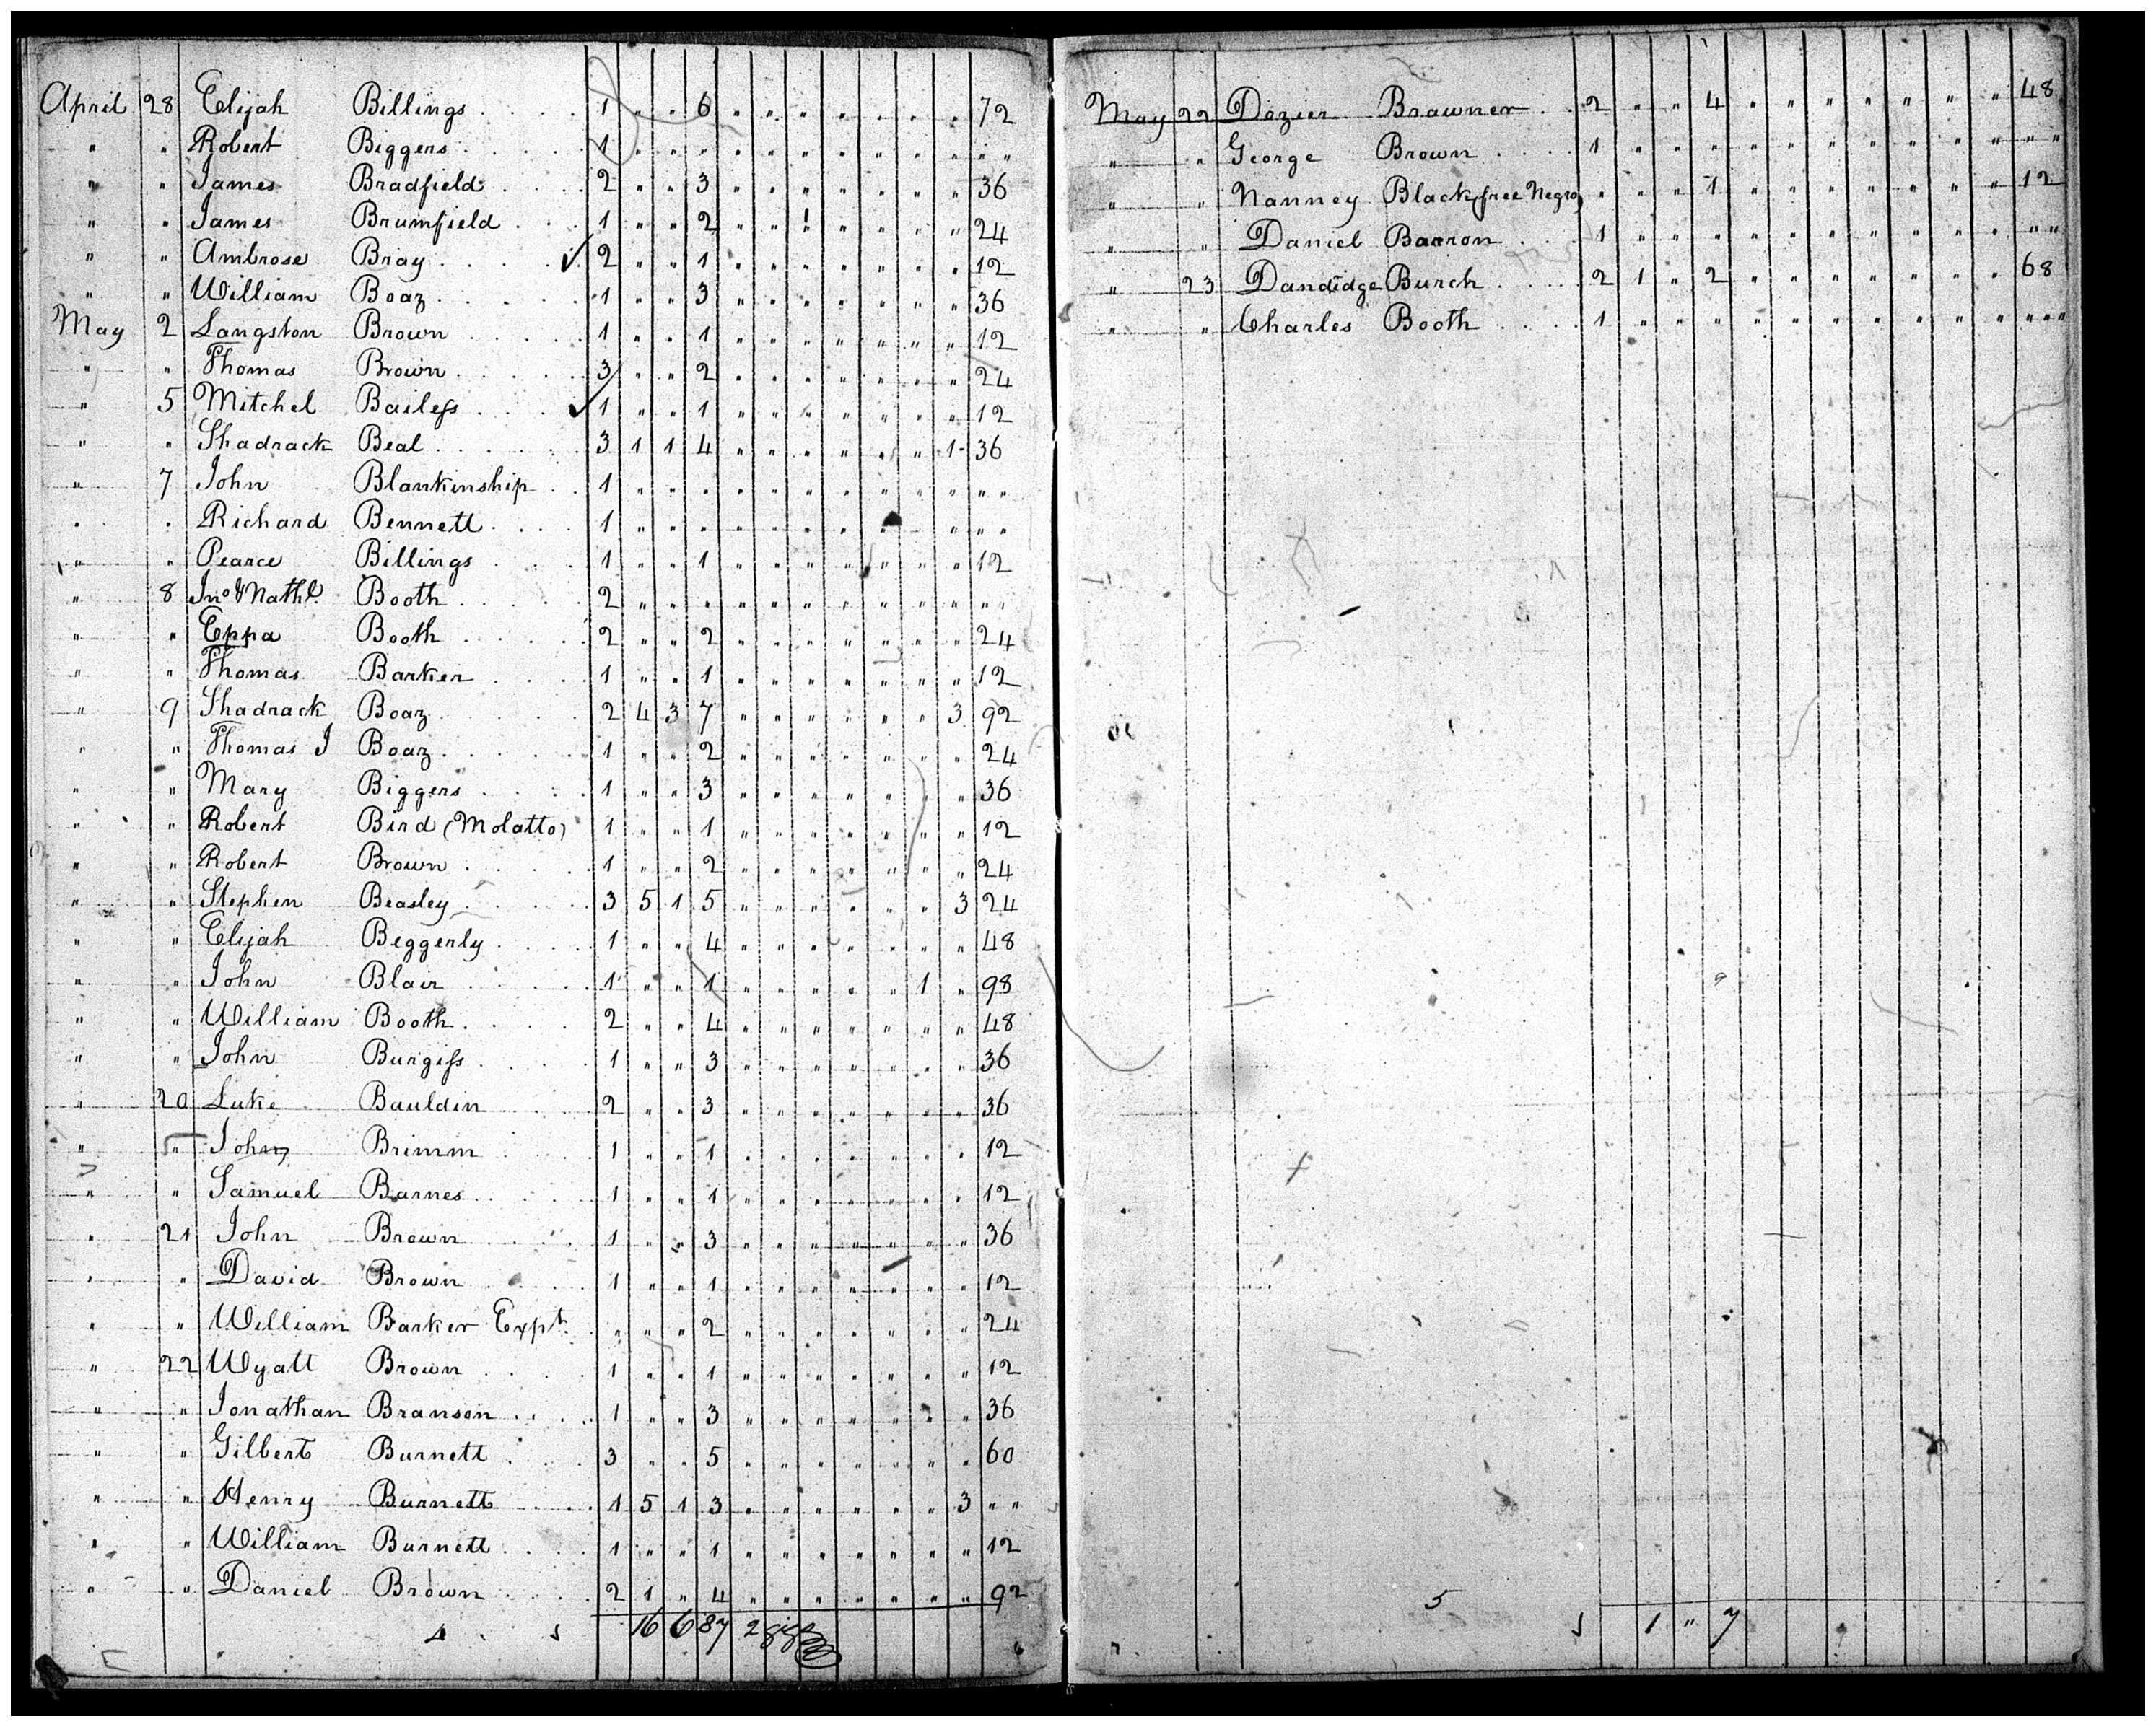 April 28 Elijah Billings . . . . 1 " " 6 " " " " " " " 72
" " Robert Biggers . . . . 1 " " " " " " " " " " " "
" " James Bradfield . . . . 2 " " 3 " " " " " " " 36
" " James Brumfield . . . 1 " " 2 " " 1 " " " " 24
" " Ambrose Bray . . . . . ✓ 2 " " 1 " " " " " " " 12
" " William Boaz . . . . . 1 " " 3 " " " " " " " 36
May 2 Langston Brown . . . . 1 " " 1 " " " " " " " 12
" " Thomas Brown . . . . . 3 " " 2 " " " " " " " 24
" 5 Mitchel Bailess . . . ✓ 1 " " 1 " " " " " " " 12
" " Shadrack Beal . . . . . 3 1 1 4 " " " " " " 1 - 36
" 7 John Blankinship . . 1 " " " " " " " " " " " "
" " Richard Bennett . . . . 1 " " " " " " " " " " "
" " Pearce Billings . . . . 1 " " 1 " " " " " " " 12
" 8 Jno & Nathl. Booth . . . . . 2 " " " " " " " " " " " "
" " Eppa Booth . . . . . 2 " " 2 " " " " " " " 24
" " Thomas Barker . . . . 1 " " 1 " " " " " " " 12
" 9 Shadrack Boaz . . . . . 2 4 3 7 " " " " " " 3 92
" " Thomas J Boaz . . . . . 1 " " 2 " " " " " " " 24
" " Mary Biggers . . . . 1 " " 3 " " " " " " " 36
" " Robert Bird (Molatto) 1 " " 1 " " " " " " " 12
" " Robert Brown . . . . . 1 " " 2 " " " " " " " 24
" " Stephen Beasley . . . . . 3 5 1 5 " " " " " " 3 24
" " Elijah Beggerly . . . . 1 " " 4 " " " " " " " 48
" " John Blair . . . . . 1 " " 1 " " " " " 1 " 98
" " William Booth . . . . . 2 " " 4 " " " " " " " 48
" " John Burgiss . . . . 1 " " 3 " " " " " " " 36
" 20 Luke Bauldin . . . 2 " " 3 " " " " " " " 36
" " John Brimm . . . . 1 " " 1 " " " " " " " 12
" " Samuel Barnes . . . . 1 " " 1 " " " " " " " 12
" 21 John Brown . . . . 1 " " 3 " " " " " " " 36
" " David Brown . . . . 1 " " 1 " " " " " " " 12
" " William Barker Expt. . " " " 2 " " " " " " " 24
" 22 Wyatt Brown . . . . 1 " " 1 " " " " " " " 12
" " Jonathan Branson . . . . 1 " " 3 " " " " " " " 36
" " Gilbert Burnett . . . 3 " " 5 " " " " " " " 60
" " Henry Burnett . . . . 1 5 1 3 " " " " " " 3 " "
" " William Burnett . . . . 1 " " 1 " " " " " " " 12
" " Daniel Brown . . . . 2 1 " 4 " " " " " " " 92
16 6 87 2 gigs
May 22 Dozier Brawner . 2 " " 4 " " " " " " " 48
" " George Brown . . . . 1 " " " " " " " " " " " "
" " Nanney Black, free Negro " " " 1 " " " " " " " 12
" " Daniel Barron . . . 1 " " " " " " " " " " " "
" 23 Dandidge Burch . . . . 2 1 " 2 " " " " " " " 68
" " Charles Booth . . . . 1 " " " " " " " " " " " "
5
1 " 7